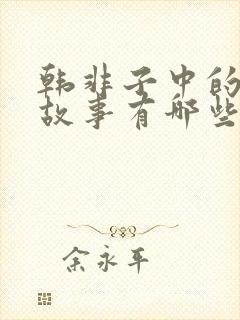 韩非子中的
故事有哪些
余永平